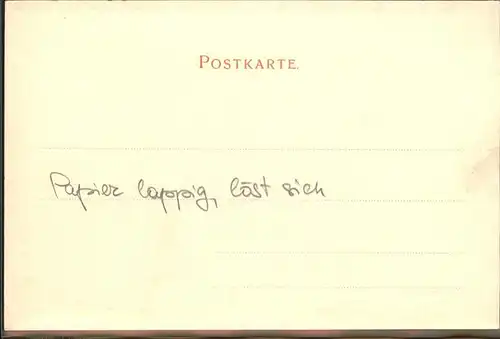 POSTKARTE.
Papier lappig, löst sich